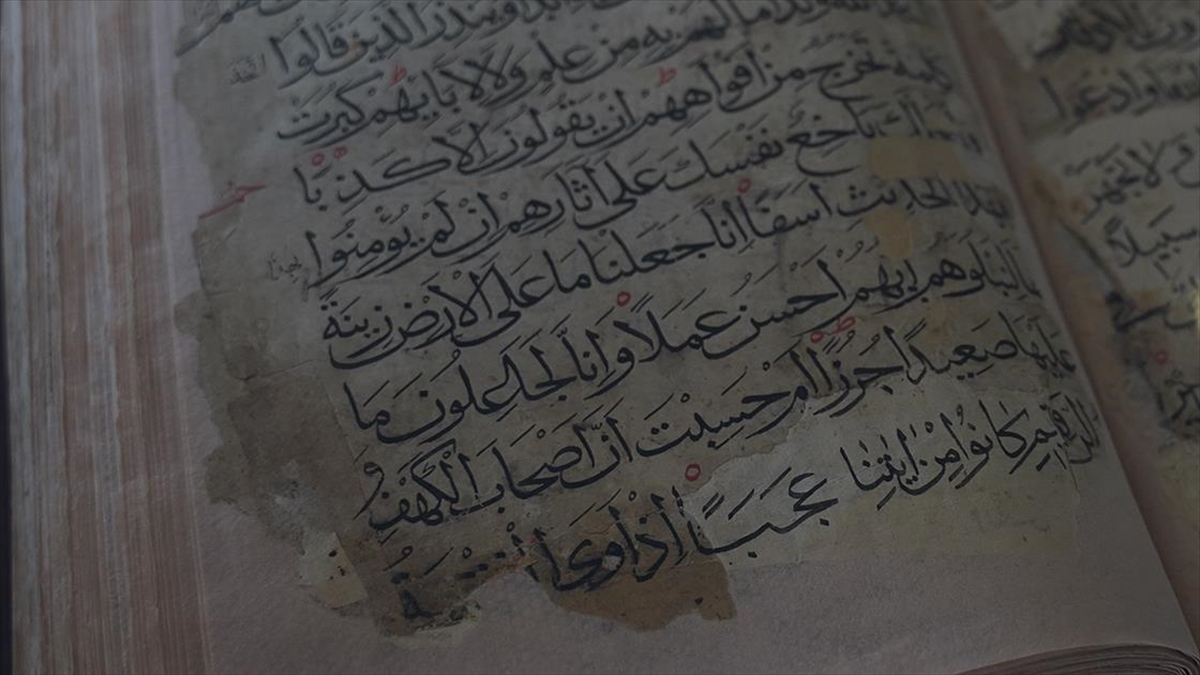 اَبَدًا وَيُنْذِرَ الَّذِينَ قَالُوا
مَا لَهُمْ بِهِ مِنْ عِلْمٍ وَلَا لِاٰبَائِهِمْ كَبُرَتْ
كَلِمَةً تَخْرُجُ مِنْ اَفْوَاهِهِمْ اِنْ يَقُولُونَ اِلَّا كَذِبًا
بَاخِعٌ نَفْسَكَ عَلٰى اٰثَارِهِمْ اِنْ لَمْ يُؤْمِنُوا
بِهٰذَا الْحَدِيثِ اَسَفًا اِنَّا جَعَلْنَا مَا عَلَى الْاَرْضِ زِينَةً
لَهَا لِنَبْلُوَهُمْ اَيُّهُمْ اَحْسَنُ عَمَلًا وَاِنَّا لَجَاعِلُونَ مَا
عَلَيْهَا صَعِيدًا جُرُزًا اَمْ حَسِبْتَ اَنَّ اَصْحَابَ الْكَهْفِ وَ
الرَّقِيمِ كَانُوا مِنْ اٰيٰتِنَا عَجَبًا اِذْ اَوَى الْفِتْيَةُ
وَلَا تَجْهَرْ
سَبِيلًا